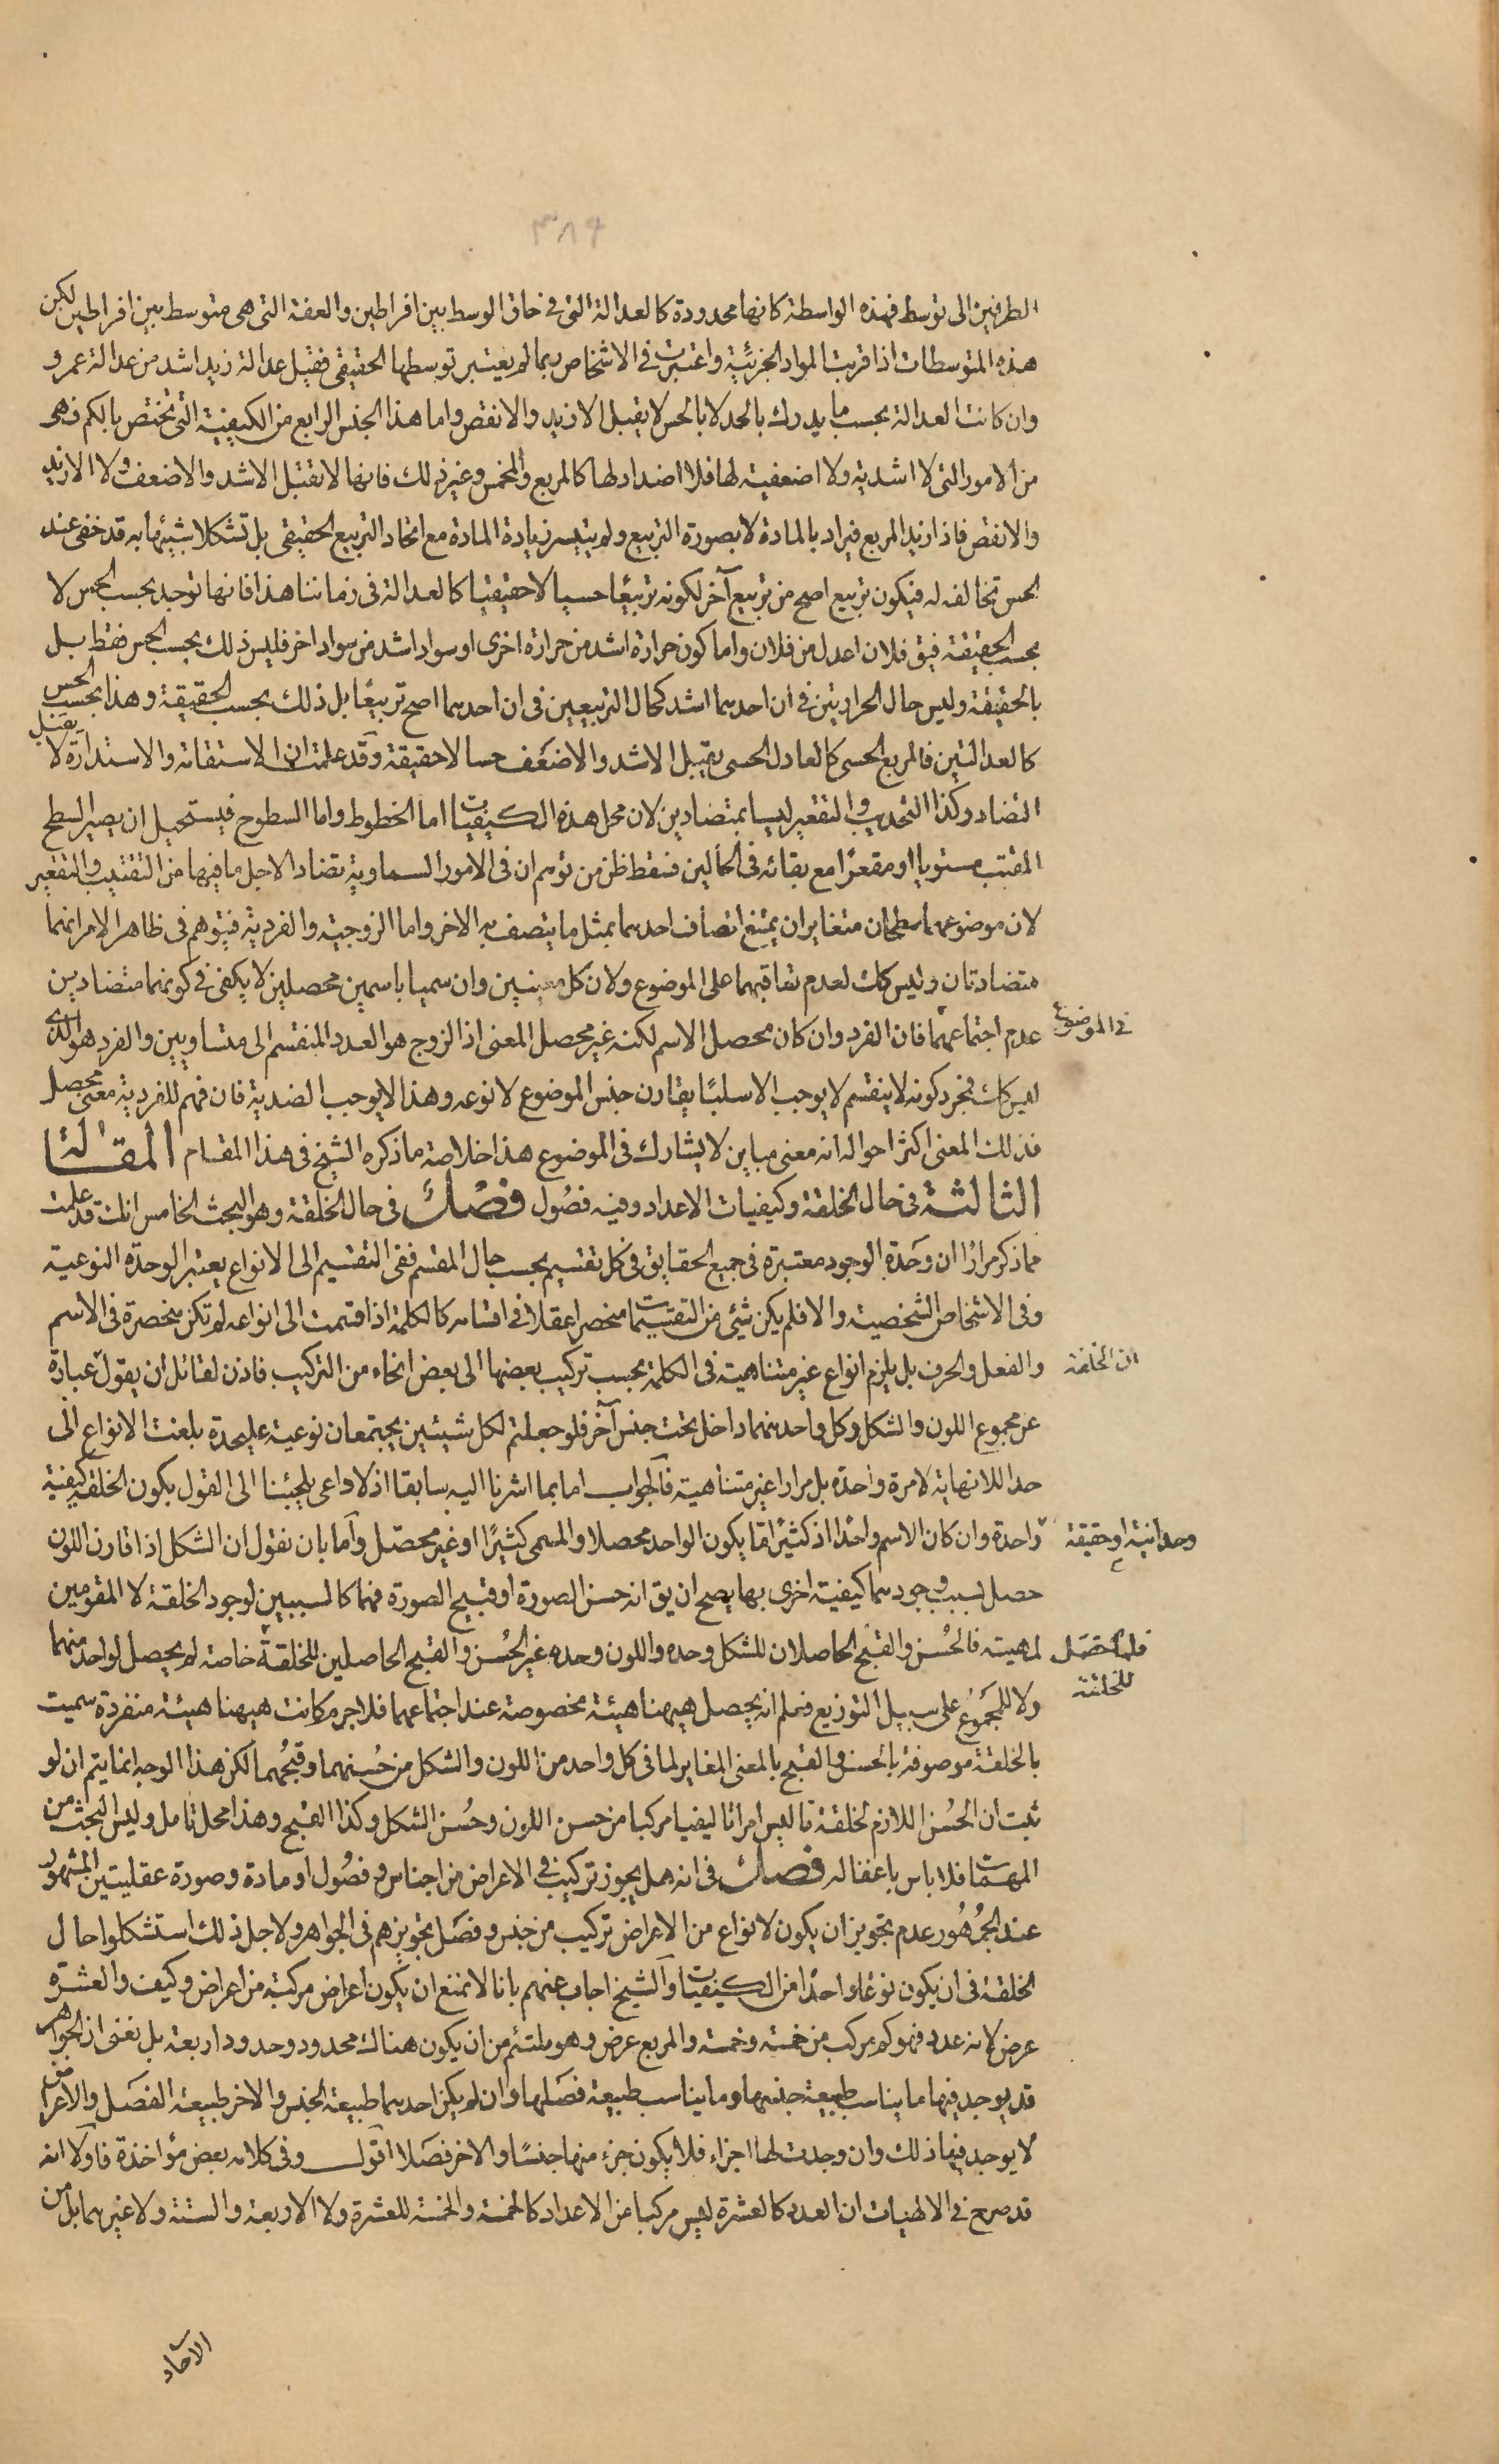 ٣٨٦
الطرفين الى توسط فهذه الواسطة كانها محدودة كالعدالة التى فى حاق الوسط بين افراطين والعفة التى هى متوسط بين افراطين لكن
هذه المتوسطات اذا قربت المواد الجزئية واعتبرت فى الاشخاص ربما لم يعتبر توسطها الحقيقى فقيل عدالة زيد اشد من عدالة عمرو
وان كانت العدالة بحسب ما يدرك بالحد لا بالحس لا يقبل الازيد والانقص واما هذا الجنس الرابع من الكيفية التى تختص بالكم فهى
من الامور التى لا اشدية ولا اضعفية لها فلا اضداد لها كالمربع والمخمس وغير ذلك فانها لا تقبل الاشد والاضعف ولا الازيد
والانقص فاذا زيد المربع فيزاد بالمادة لا بصورة التربيع ولو يتيسر زيادة المادة مع اتحاد التربيع الحقيقى بل تشكلا شبيها به قد خفى عند
الحس تخالفه له فيكون تربيع اصح من تربيع آخر لكونه تربيعا حسيا لا حقيقيا كالعدالة فى زماننا هذا فانها توجد بحسب الحس لا
بحسب الحقيقة فيق فلان اعدل من فلان واما كون حرارة اشد من حرارة اخرى او سواد اشد من سواد اخر فليس ذلك بحسب الحس فقط بل
بالحقيقة وليس حال الحرارتين فى ان احدهما اشد كحال التربيعين فى ان احدهما اصح تربيعا بل ذلك بحسب الحقيقة وهذا بحسب الحس
كالعدالتين فالمربع الحسى كالعادل الحسى يقبل الاشد والاضعف حسا لا حقيقة وقد علمت ان الاستقامة والاستدارة لا يقبل
التضاد وكذا التحديب والتقعير ليسا بمتضادين لان محل هذه الكيفيات اما الخطوط واما السطوح فيستحيل ان يصير السطح
المقبب مستويا او مقعرا مع بقائه فى الحالين فسقط ظن من توهم ان فى الامور السماوية تضادا لاجل ما فيها من التقبيب والتقعير
لان موضوعهما سطحان متغايران يمتنع اتصاف احدهما بمثل ما يتصف به الاخر واما الزوجية والفردية فيتوهم فى ظاهر الامر انهما
متضادتان وليس كك لعدم تعاقبهما على الموضوع ولان كل معنيين وان سميا باسمين محصلين لا يكفى فى كونهما متضادين
عدم اجتماعهما فى الموضوع فان الفرد وان كان محصل الاسم لكنه غير محصل المعنى اذ الزوج هو العدد المنقسم الى متساويين والفرد هو الذى
ليس كك فمجرد كونه لا ينقسم لا يوجب الا سلبا يقارن جنس الموضوع لا نوعه وهذا لا يوجب الضدية فان فهم للفردية معنى محصل
فذلك المعنى اكثر احواله انه معنى مباين لا يشارك فى الموضوع هذا خلاصة ما ذكره الشيخ فى هذا المقام المقالة
الثالثة فى حال الخلقة وكيفيات الاعداد وفيه فصول فصل فى حال الخلقة وهو البحث الخامس انك قد علمت
مما ذكر مرارا ان وحدة الوجود معتبرة فى جميع الحقايق فى كل تقسيم بحسب حال المقسم ففى التقسيم الى الانواع يعتبر الوحدة النوعية
وفى الاشخاص الشخصية والا فلم يكن شئ من التقسيمات منحصرا عقلا فى اقسامه كالكلمة اذا قسمت الى انواعه لم تكن منحصرة فى الاسم
والفعل والحرف بل يلزم انواع غير متناهية فى الكلمة بحسب تركيب بعضها الى بعض انحاء من التركيب فاذن لقائل ان يقول ان الخلقة عبارة
عن مجموع اللون والشكل وكل واحد منهما داخل تحت جنس آخر فلو جعلتم لكل شيئين يجتمعان نوعية عليحدة بلغت الانواع الى
حد اللانهاية لا مرة واحدة بل مرارا غير متناهية فالجواب اما بما اشرنا اليه سابقا اذ لا داعى يلجئنا الى القول بكون الخلقة كيفية
وحدانية او حقيقة واحدة وان كان الاسم واحدا اذ كثيرا ما يكون الواحد محصلا والمسمى كثيرا او غير محصل واما بان نقول ان الشكل اذا قارن اللون
حصل بسبب وجودهما كيفية اخرى بها يصح ان يق انه حسن الصورة او قبيح الصورة فهما كالسببين لوجود الخلقة لا المقومين
لمهيته فالحسن والقبح الحاصلان للشكل وحده واللون وحده غير الحسن والقبح الحاصلين للخلقة فلما حصل للخلقة خاصة لم يحصل لواحد منهما
ولا للمجموع على سبيل التوزيع فعلم انه يحصل هيهنا هيئة مخصوصة عند اجتماعهما فلا جرم كانت هيهنا هيئة منفردة سميت
بالخلقة موصوفة بالحسن والقبح بالمعنى المغاير لما فى كل واحد من اللون والشكل من حسنهما وقبحهما لكن هذا الوجه انما يتم ان لو
ثبت ان الحسن اللازم لخلقة ما ليس امرا تاليفيا مركبا من حسن اللون وحسن الشكل وكذا القبح وهذا محل تامل وليس البحث من
المهمات فلا باس باغفاله فصل فى انه هل يجوز تركيب فى الاعراض من اجناس وفصول او مادة وصورة عقليتين المشهور
عند الجمهور عدم تجويز ان يكون لانواع من الاعراض تركيب من جنس وفصل بتجويزهم فى الجواهر ولاجل ذلك استشكلوا حال
الخلقة فى ان يكون نوعا واحدا من الكيفيات والشيخ اجاب عنهم بانا لا نمنع ان يكون اعراض مركبة من اعراض وكيف والعشرة
عرض لانه عدد فهو كم مركب من خمسة وخمسة والمربع عرض وهو ملتئم من ان يكون هناك محدود وحدود اربعة بل نعنى ان الجواهر
قد يوجد فيها ما يناسب طبيعة جنسها وما يناسب طبيعة فصلها وان لم يكن احدهما طبيعة الجنس والاخر طبيعة الفصل والاعراض
لا يوجد فيها ذلك وان وجدت لها اجزاء فلا يكون جزء منها جنسا والاخر فصلا اقول وفى كلامه بعض مؤاخذة فاولا انه
قد صرح فى الالهيات ان العدد كالعشرة ليس مركبا من الاعداد كالخمسة والخمسة للعشرة ولا الاربعة والستة ولا غيرهما بل من
الآحاد